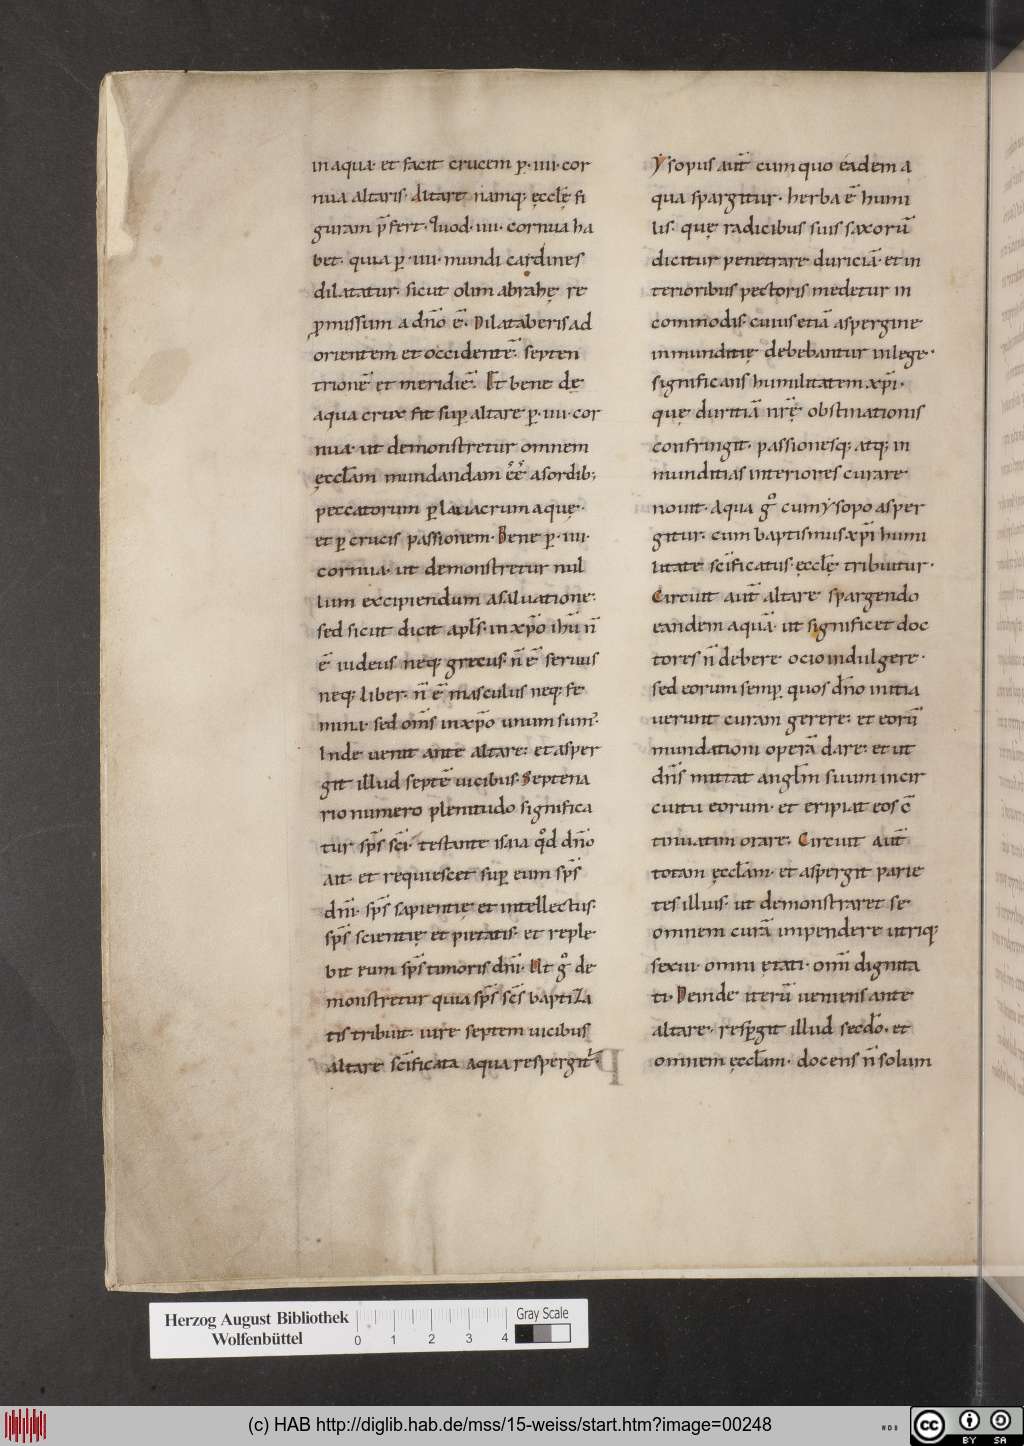 in aqua· et facit crucem ꝑ·iiii·cor
nua altaris· Altare namq; ęcclę̄ fi
guram p̄fert· Quod·iiii·cornua ha
bet· quia ꝑ·iiii·mundi cardines
dilatatur· sicut olim abrahę re
ꝓmissum a dn̄o ē· Dilataberis ad
orientem et occidentē· septen
trionē et meridiē· Et bene de
aqua crux fit suꝑ altare ꝑ·iiii·cor
nua· ut demonstretur omnem
ęccl̄am mundandam ēē a sordib;
peccatorum ꝑ lauacrum aquę·
et ꝑ crucis passionem· Bene ꝑ·iiii·
cornua· ut demonstretur nul
lum excipiendum a saluatione·
sed sicut dicit apl̄s· in xp̄o ihū n̄
ē iudeus neq; grecus· n̄ ē seruus
neq; liber· n̄ ē masculus neq; fe
mina· sed om̄s in xp̄o unum sum᷒·
Inde uenit ante altare· et asper
git illud septē uicibus· Septena
rio numero plenitudo significa
tur sp̄s sc̄i· testante isaia qͦd dn̄o
ait· et requiescet suꝑ eum sp̄s
dn̄i· sp̄s sapientię et intellectus·
sp̄s scientię et pietatis· et reple
bit eum sp̄s timoris dn̄i· Ut gͦ de
monstretur quia sp̄s sc̄s baptiza
tis tribuit· uire septem uicibus
altare sc̄ificata aqua respergit᷒·
Ysopus aut̄ cum quo eadem a
qua spargitur· herba ē humi
lis· quę radicibus suis saxorū
dicitur penetrare duriciā· et in
terioribus pectoris medetur in
commodis· cuius etiā aspergine
inmunditię debebantur in lege·
significans humilitatem xp̄i·
quę duritiā nr̄ę obstinationis
confringit· passionesq; atq; in
munditias interiores curare
nouit· Aqua gͦ cum ysopo asper
gitur· cum baptismus xp̄i humi
litate sc̄ificatus· ęcclę̄ tribuitur·
Circuit aut̄ altare spargendo
eandem aquā· ut significet doc
tores n̄ debere ocio indulgere·
sed eorum semꝑ quos dn̄o initia
uerunt curam gerere· et eorū
mundationi operā dare· et ut
dn̄s mittat angl̄m suum in cir
cuitu eorum· et eripiat eos c̄
tinuatim orare· Circuit aut̄
totam ęccl̄am· et aspergit parie
tes illius· ut demonstraret se
omnem curā impendere utriq;
sexui· omni ętati· om̄i dignita
ti· Deinde iterū ueniens ante
altare· resꝑgit illud secd̄o· et
omnem ęccl̄am· docens n̄ solum
Herzog August Bibliothek
Wolfenbüttel
0 1 2 3 4
Gray Scale
(c) HAB http://diglib.hab.de/mss/15-weiss/start.htm?image=00248
WDB
cc BY SA